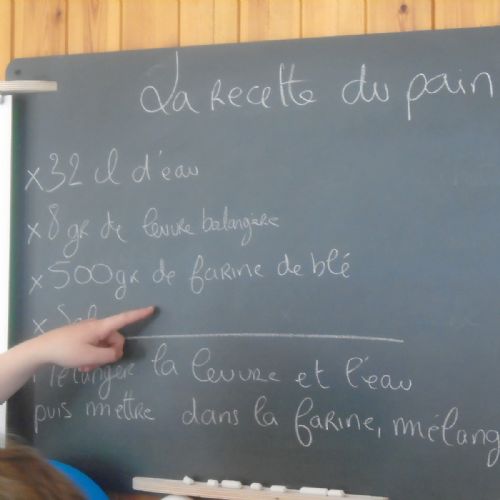 La recette du pain
x 32 cl d'eau
x 8 gr de levure bolangère
x 500 gr de farine de blé
x Sel
Mélanger la levure et l'eau
puis mettre dans la farine, mélang